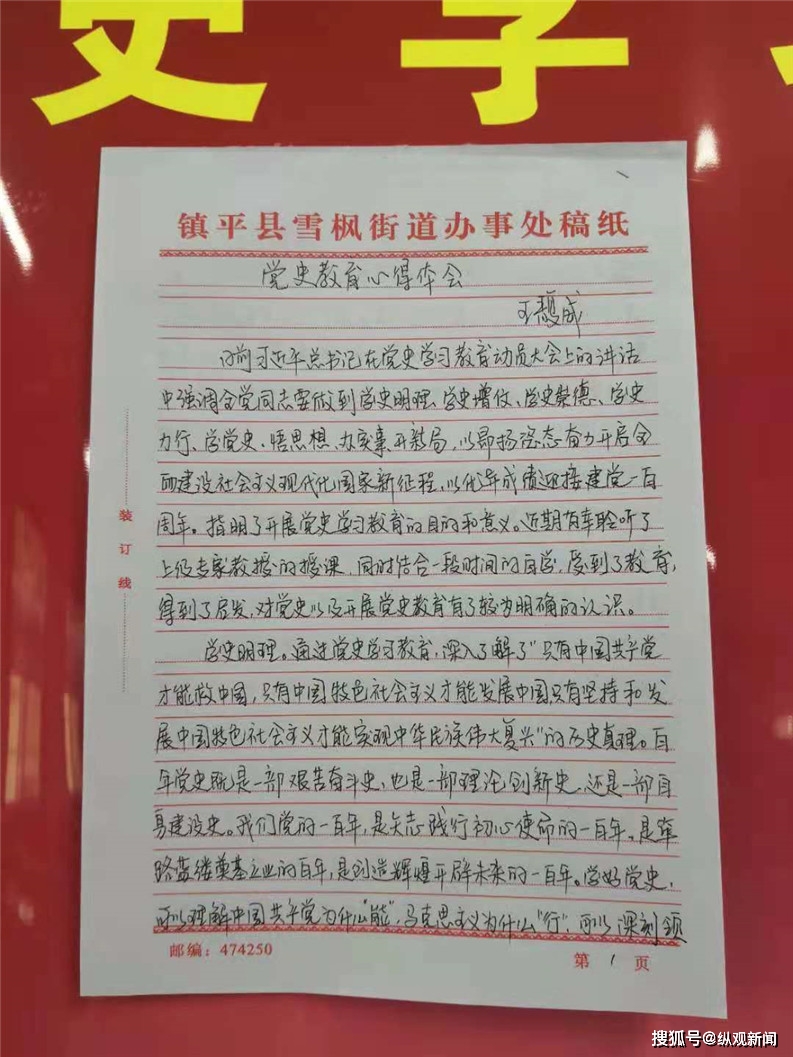 史学
镇平县雪枫街道办事处稿纸
党史教育心得体会
王馥成
日前习近平总书记在党史学习教育动员大会上的讲话
中强调全党同志要做到学史明理、学史增信、学史崇德、学史
力行、学党史、悟思想、办实事、开新局,以昂扬姿态奋力开启全
面建设社会主义现代化国家新征程,以优异成绩迎接建党一百
周年。指明了开展党史学习教育的目的和意义。近期有幸聆听了
上级专家教授的授课,同时结合一段时间的自学,受到了教育,
得到了启发,对党史以及开展党史教育有了较为明确的认识。
学史明理。通过党史学习教育,深入了解了"只有中国共产党
才能救中国,只有中国特色社会主义才能发展中国只有坚持和发
展中国特色社会主义才能实现中华民族伟大复兴"的历史真理。百
年党史既是一部艰苦奋斗史,也是一部理论创新史,还是一部自
身建设史。我们党的一百年,是矢志践行初心使命的一百年,是筚
路蓝缕奠基立业的百年,是创造辉煌开辟未来的一百年。学好党史,
可以理解中国共产党为什么"能",马克思主义为什么"行",可以深刻领
装订线
邮编:474250
第 1 页
搜狐号@纵观新闻